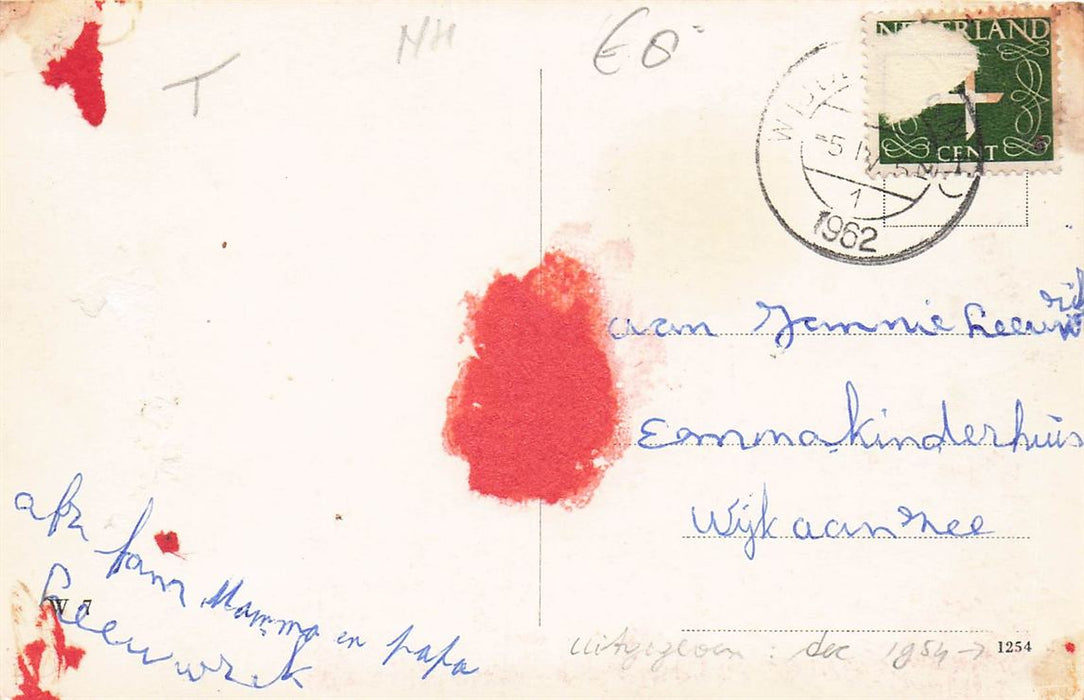 T
NH
€ 8-
NEDERLAND
CENT
-5 IV
1
1962
aan Jannie Leeuw
Emmakinderhuis
Wijk aan Zee
afz
fam Mamma en papa
W 7
uitgegeven : dec 1954 →
1254